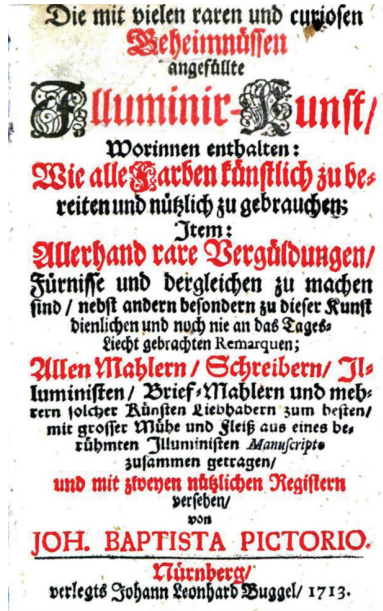 Die mit vielen raren und curiosen
Geheimnüssen
angefüllte
Illuminir-Kunst/
Worinnen enthalten:
Wie alle Farben künstlich zu be-
reiten und nützlich zu gebrauchen;
Item:
Allerhand rare Vergüldungen/
Fürnisse und dergleichen zu machen
sind / nebst andern besondern zu dieser Kunst
dienlichen und noch nie an das Tages-
Liecht gebrachten Remarquen;
Allen Mahlern/ Schreibern/ Il-
luministen/ Brief-Mahlern und meh-
rern solcher Künsten Liebhabern zum besten/
mit grosser Mühe und Fleiß aus eines be-
rühmten Illuministen Manuscripto
zusammen getragen/
und mit zweyen nützlichen Registern
versehen/
von
JOH. BAPTISTA PICTORIO.
Nürnberg/
verlegts Johann Leonhard Buggel/ 1713.